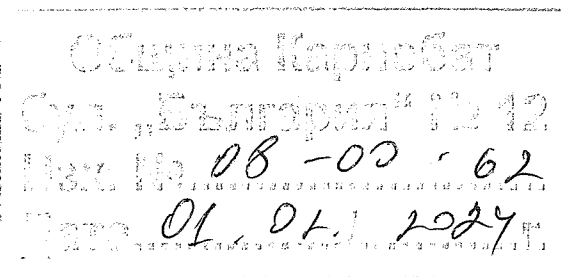 Община Карнобат
бул. „България“ № 12
Изх. № 08-00-62
Дата 01.02. 2024 г.